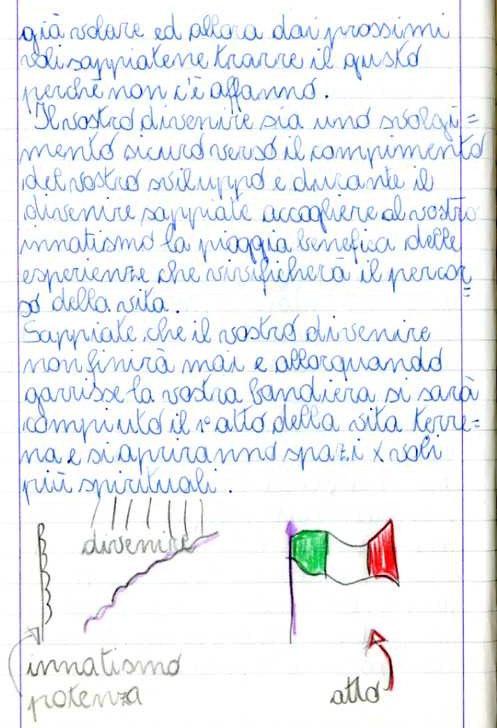 già volare ed allora dai prossimi
voli sappiatene trarre il gusto
perché non c'è affanno.
Il vostro divenire sia uno svolgi=
mento sicuro verso il compimento
del vostro sviluppo e durante il
divenire sappiate accogliere al vostro
innatismo la pioggia benefica delle
esperienze che vivificherà il percor
so della vita.
Sappiate che il vostro divenire
non finirà mai e allorquando
garrisse la vostra bandiera si sarà
compiuto il 1° atto della vita terre=
na e si apriranno spazi x voli
più spirituali.
divenire
innatismo
potenza
atto